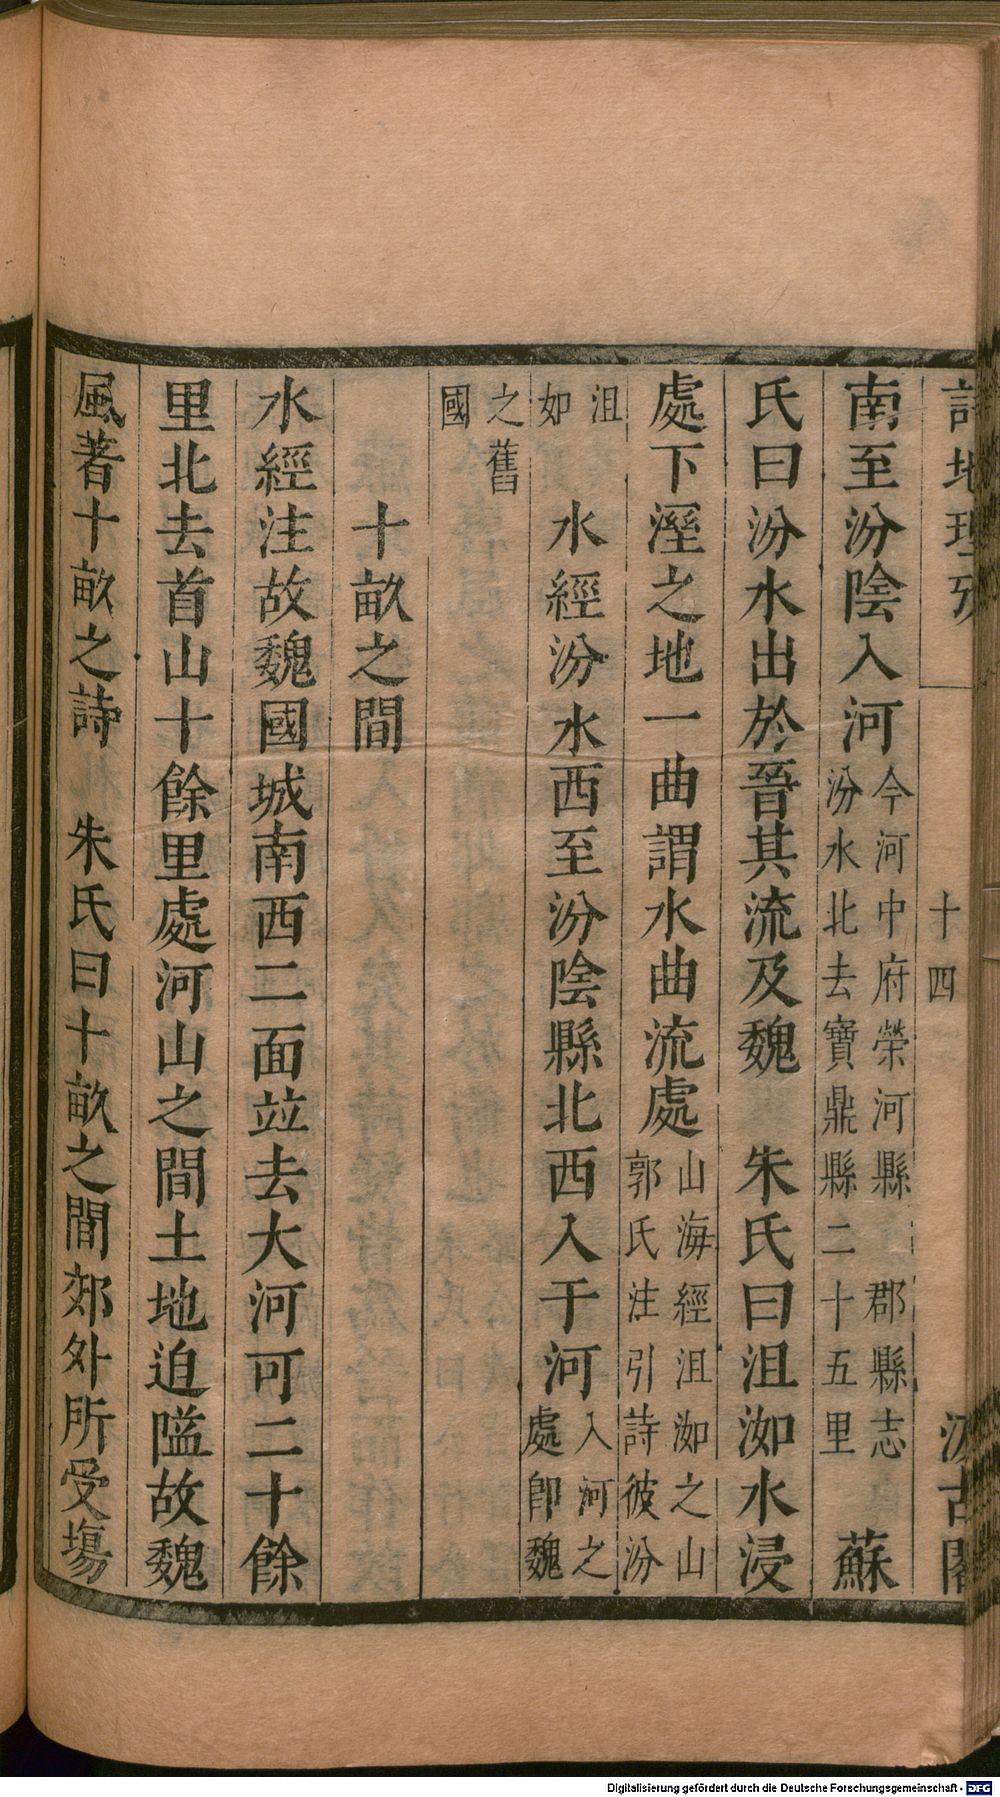 詩地理攷 十四 汲古閣
南至汾陰入河今河中府榮河縣 郡縣志汾水北去寶鼎縣二十五里 蘇
氏曰汾水出於晉其流及魏 朱氏曰沮洳水浸
處下溼之地一曲謂水曲流處山海經沮洳之山郭氏注引詩彼汾
沮如 水經汾水西至汾陰縣北西入于河入河之處卽魏
之舊國
十畝之間
水經注故魏國城南西二面竝去大河可二十餘
里北去首山十餘里處河山之間土地迫隘故魏
風著十畝之詩 朱氏曰十畝之間郊外所受場
Digitalisierung gefördert durch die Deutsche Forschungsgemeinschaft - DFG